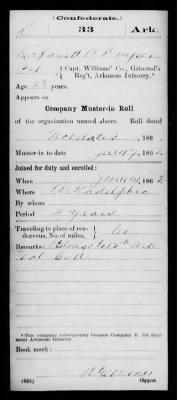 (Confederate.)
33 Ark.
Capt. Williams' Co., Grinsted's
Reg't, Arkansas Infantry.*
Age years
Appears on
Company Muster-in Roll
of the organization named above. Roll dated
Not dated, 186 .
Muster-in to date July 7, 186 2.
Joined for duty and enrolled:
When June, 186 2.
Where Arkadelphia
By whom
Period 2 years
Traveling to place of ren-
dezvous, No. of miles, 60
Remarks:
*This company subsequently became Company F, 33d Regi-
ment Arkansas Infantry.
Book mark:
Copyist.